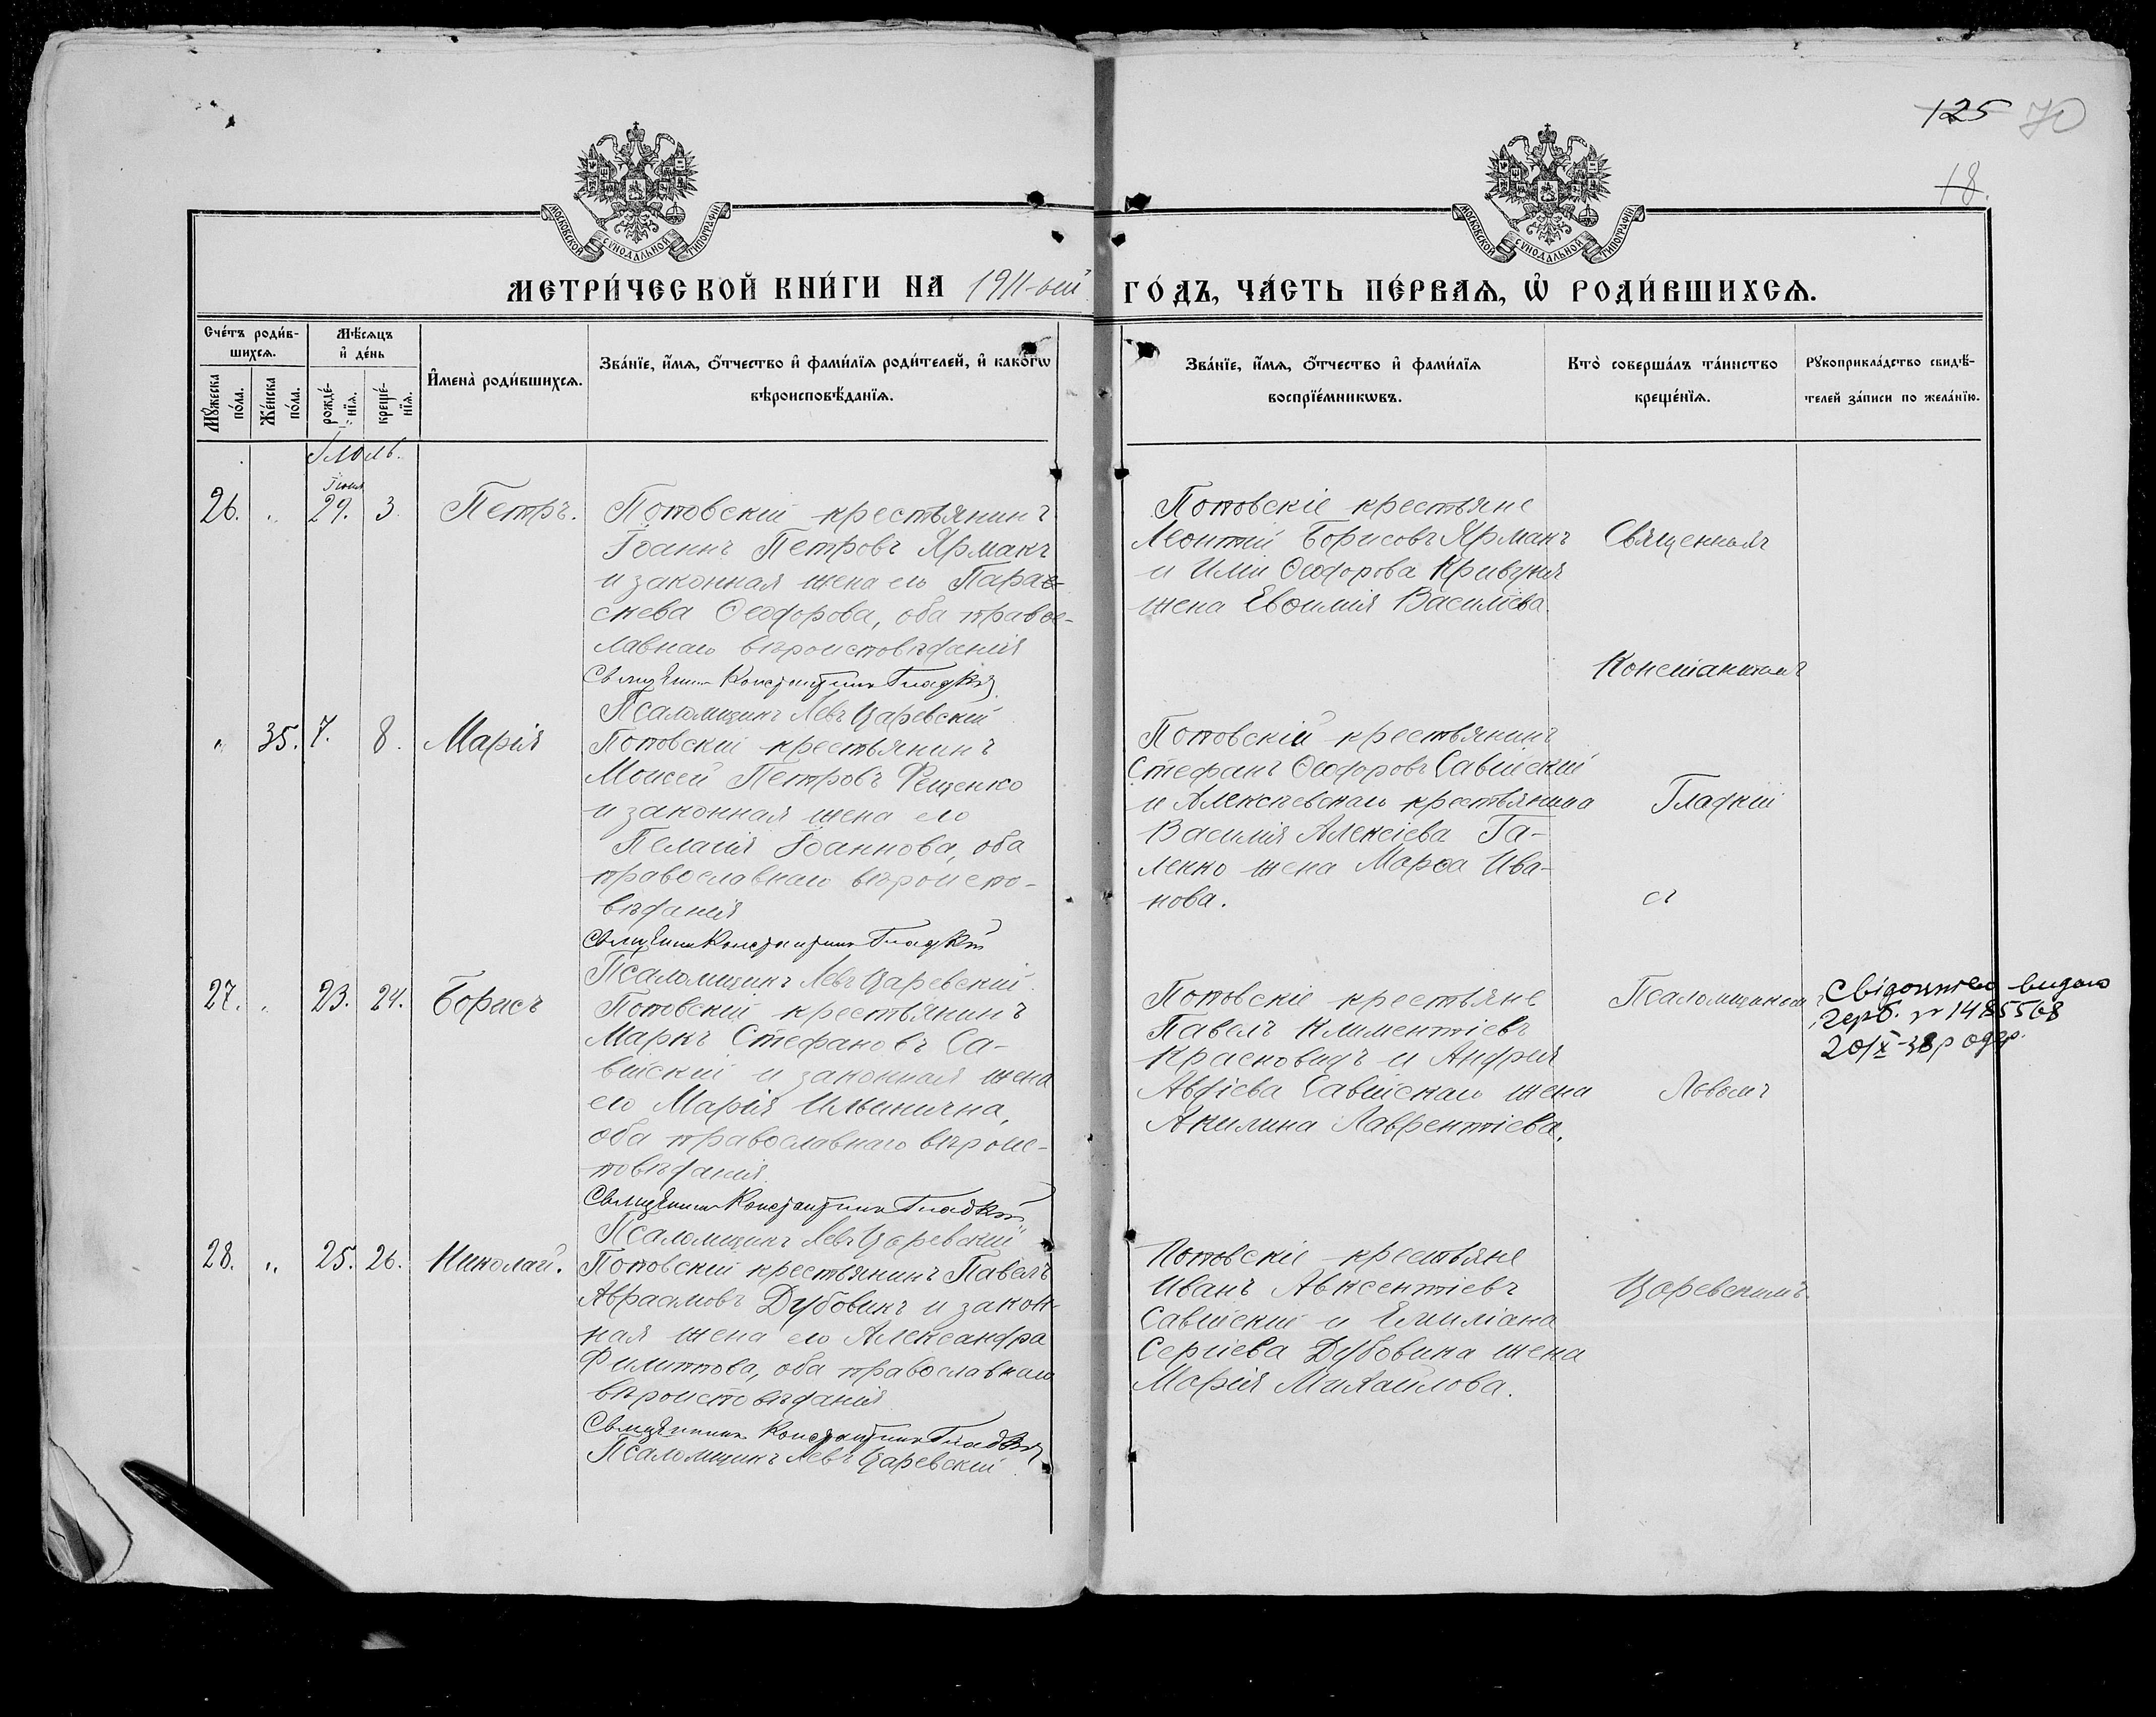 125 70
18.
МОСКОВСКОЙ СѴНОДАЛЬНОЙ ТИПОГРАФІИ
МОСКОВСКОЙ СѴНОДАЛЬНОЙ ТИПОГРАФІИ
МЕТРИ́ЧЕСКОЙ КНИ́ГИ НА 1911-ый ГО́ДЪ, ЧА́СТЬ ПЕ́РВАѦ, Ѡ҆ РОДИ́ВШИХСѦ.
Сче́тъ роди́в-
шихсѧ.
Мѣ́сѧцъ
и҆ де́нь
Мꙋ́жеска
по́ла.
Же́нска
по́ла.
рожде́-
нїѧ.
креще́-
нїѧ.
И҆мена̀ роди́вшихсѧ.
Зва́нїе, и҆́мѧ, ѻ҆́тчество и҆ фами́лїѧ роди́телей, и҆ како́гѡ
вѣроисповѣ́данїѧ.
Зва́нїе, и҆́мѧ, ѻ҆́тчество и҆ фами́лїѧ
воспрїе́мникѡвъ.
Кто̀ соверша́лъ та́инство
креще́нїѧ.
Рꙋкоприкла́дство свидѣ́-
телей за́писи по жела́нїю.
Іюль.
Іюня
26. " 29. 3. Петръ.
Поповскій крестьянинъ
Іоаннъ Петровъ Ярмакъ
и законная жена его Парас-
кева Ѳеодорова, оба право-
славнаго вѣроисповѣданія
Священникъ Константинъ Гладкій
Псаломщикъ Левъ Царевскій
Поповскіе крестьяне
Леонтій Борисовъ Ярмакъ
и Иліи Ѳеодорова Кривуна
жена Евѳимія Василіева.
Священникъ
Константинъ
" 35. 7. 8. Марія
Поповскій крестьянинъ
Моисей Петровъ Рещенко
и законная жена его
Пелагія Іоаннова, оба
православнаго вѣроиспо-
вѣданія
Священникъ Константинъ Гладкій
Псаломщикъ Левъ Царевскій.
Поповскій крестьянинъ
Стефанъ Ѳеодоровъ Савійскій
и Алексѣевскаго крестьянина
Василія Алексіева Га-
ленко жена Марѳа Ива-
нова.
Гладкій
съ
27. " 23. 24. Борисъ
Поповскій крестьянинъ
Маркъ Стефановъ Са-
війскій и законная жена
его Марія Ильинична,
оба православнаго вѣроис-
повѣданія.
Священникъ Константинъ Гладкій
Псаломщикъ Левъ Царевскій
Поповскіе крестьяне
Павелъ Климентіевъ
Красковидъ и Андрея
Авдіева Савійскаго жена
Акилина Лаврентіева.
Псаломщикомъ
Львомъ
Свідоцтво видано
герб. № 1485568
20/X-38 р одер.
28. " 25. 26. Николай.
Поповскій крестьянинъ Павелъ
Авраамовъ Дубовикъ и закон-
ная жена его Александра
Филиппова, оба православнаго
вѣроисповѣданія
Священникъ Константинъ Гладкій
Псаломщикъ Левъ Царевскій
Поповскіе крестьяне
Иванъ Авксентіевъ
Савійскій и Емиліана
Сергіева Дубовика жена
Марія Михаилова.
Царевскимъ